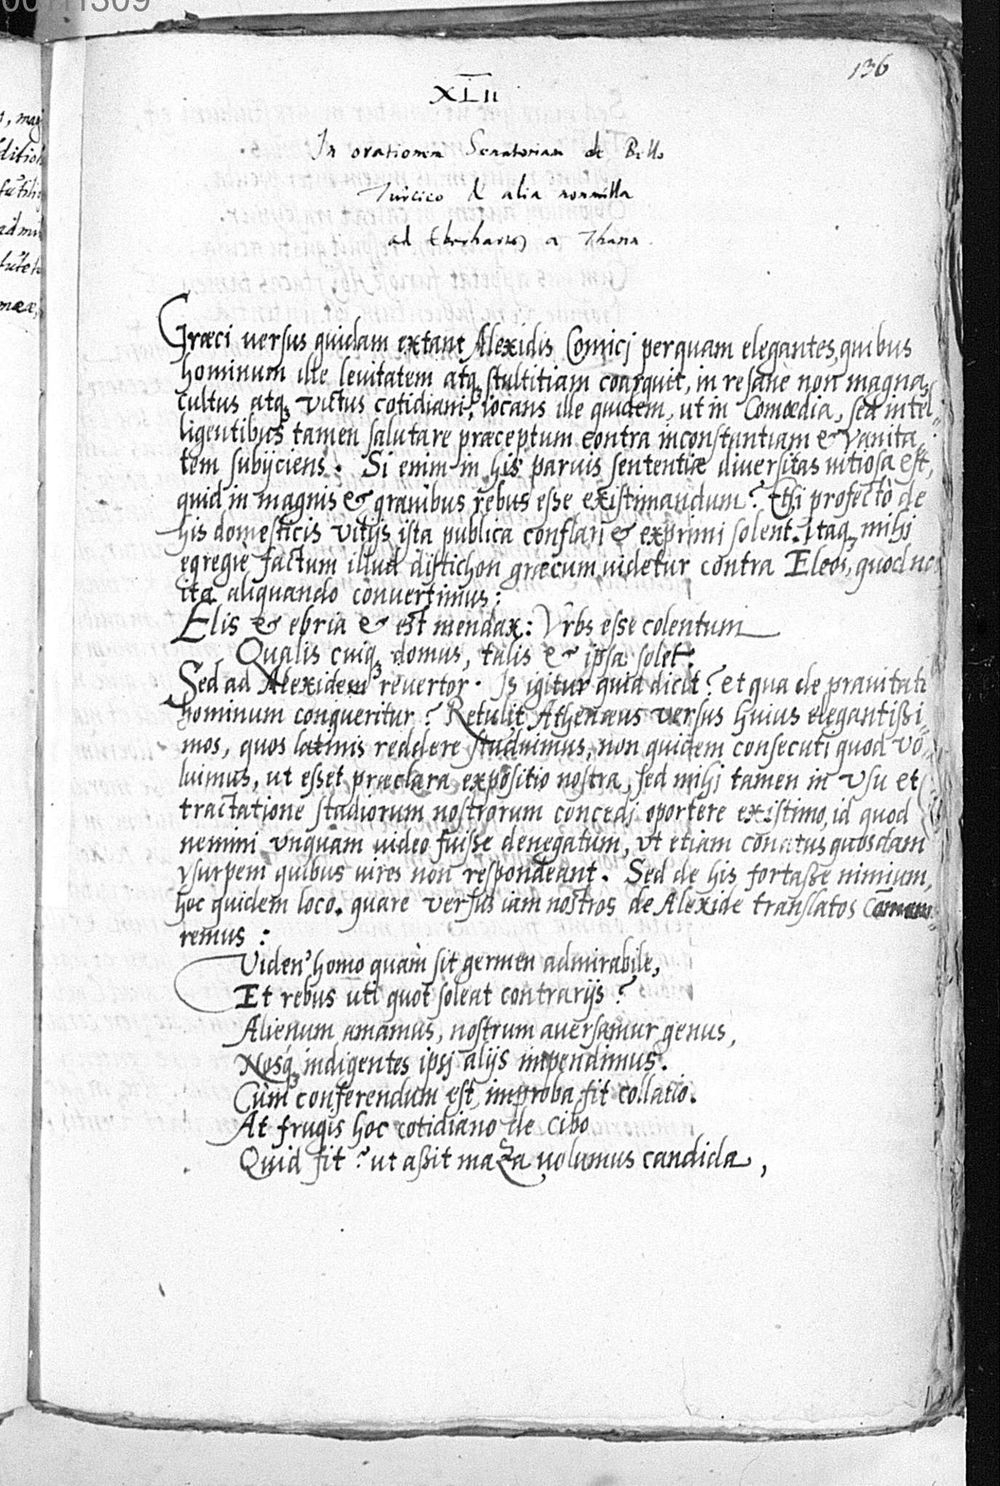 00111309
136
XLII
In orationem Senatoriam de Bello
Turcico & alia nonnulla
ad Eberhartū a Thann.
, mag
ditioh
futili
admi
futet
meæ,
Græci versus quidam extant Alexidis Comici perquam elegantes, quibus
hominum ille levitatem atq; stultitiam coarguit, in re sanè non magna
cultus atq; victus cotidiani, iocans ille quidem, ut in Comœdia, sed intel
ligentibus tamen salutare præceptum contra inconstantiam & vanita
tem subijciens. Si enim in his parvis sententiæ diversitas vitiosa est,
quid in magnis & gravibus rebus esse existimandum? Etsi profectò de
his domesticis vitijs ista publica conflari & exprimi solent. Itaq; mihi
egregiè factum illud distichon græcum videtur contra Eleos, quod nos
ita aliquando convertimus:
Elis & ebria & est mendax: Vrbs esse colentum
Qualis cuiq; domus, talis & ipsa solet.
Sed ad Alexidem revertor. Is igitur quid dicit? et qua de pravitati
hominum conqueritur? Retulit Athenæus versus huius elegantißi
mos, quos latinis reddere studuimus, non quidem consecuti quod vo
luimus, ut esset præclara expositio nostra, sed mihi tamen in usu et
tractatione studiorum nostrorum concedi oportere existimo, id quod
nemini vnquam video fuisse denegatum, vt etiam conatus quosdam
vsurpem quibus vires non respondeant. Sed de his fortaße nimium,
hoc quidem loco. quare versus iam nostros de Alexide translatos
remus :
Viden' homo quàm sit germen admirabile,
Et rebus uti quot soleat contrarijs?
Alienum amamus, nostrum aversamur genus,
Nosq; indigentes ipsi alijs impendimus.
Cùm conferendum est, improba fit collatio.
At frugis hoc cotidiano de cibo
Quid fit? ut aßit maza volumus candida,